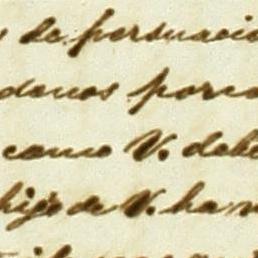 de persuacio
donos porca
como V. debe
hijo de V. ha